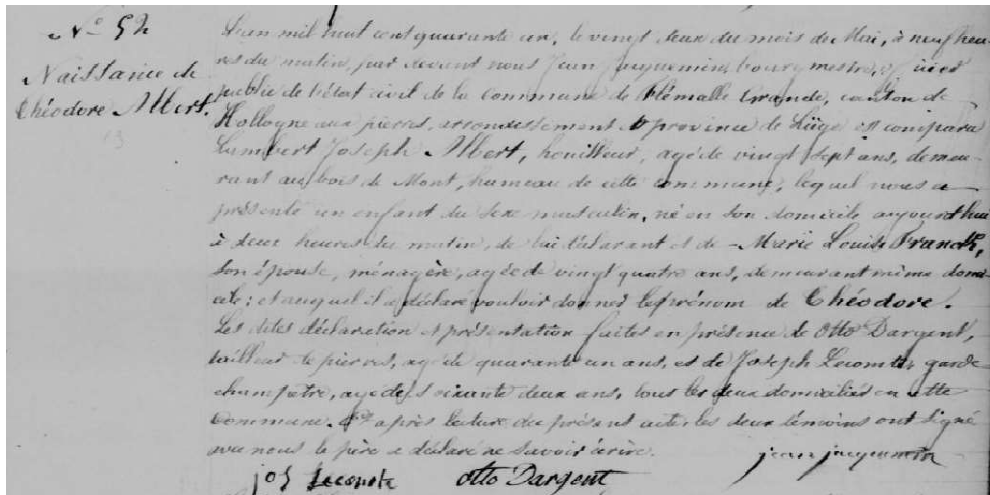 N° 52
Naissance de
Théodore Albert.
L'an mil huit cent quarante un, le vingt deux du mois de Mai, à neuf heu-
res du matin, par devant nous Jean Jacquemin, bourgmestre, officier
public de l'état civil de la commune de Flémalle Grande, canton de
Hollogne aux pierres, arrondissement & province de Liége est comparu
Lambert Joseph Albert, houilleur, agé de vingt sept ans, demeu-
rant au bois de Mont, hameau de cette commune, lequel nous a
présenté un enfant du sexe masculin, né en son domicile aujourd'hui
à deux heures du matin, de lui déclarant et de Marie Louise Franck,
son épouse, ménagère, agée de vingt quatre ans, demeurant même domi-
cile; et auquel il a déclaré vouloir donner le prénom de Théodore.
Les dites déclaration & présentation faites en présence de Otto Dargent,
tailleur de pierres, agé de quarante un ans, et de Joseph Lecomte, garde
champêtre, agé de soixante deux ans, tous les deux domiciliés en cette
commune. Et après lecture du présent acte les deux témoins ont signé
avec nous le père a déclaré ne savoir écrire.
jean jacquemin
jos Lecomte Otto Dargent